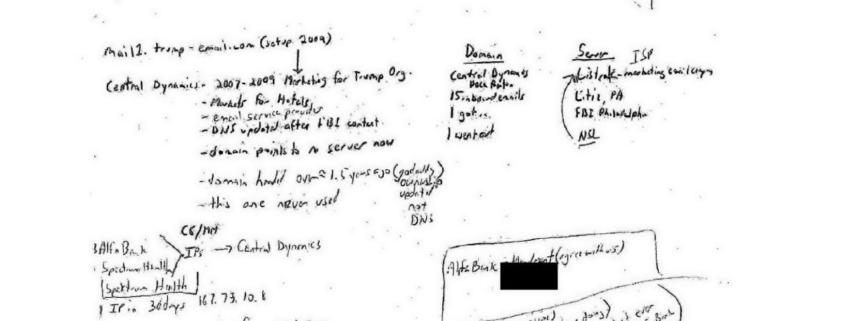 mail1.trump-email.com (setup 2009)
Central Dynamics - 2007-2009 Marketing for Trump Org.
- Markets for Hotels,
- email service provider
- DNS updated after FBI contact
- domain points to no server now
- domain handed over ≈ 1.5 years ago (godaddy
ownership
updated
not
DNS)
- this one never used
Domain
Central Dynamics
Boca Raton
15 inbound emails
1 got in
1 went out
Server ISP
Listrak - marketing email
Litiz, PA
FBI Philadelphia
NSL
Alfa Bank
Spectrum Health
Spektrum Health
IPs → Central Dynamics
1 IP in 30 days 167.73.10.8
Alfa Bank (agree with us)